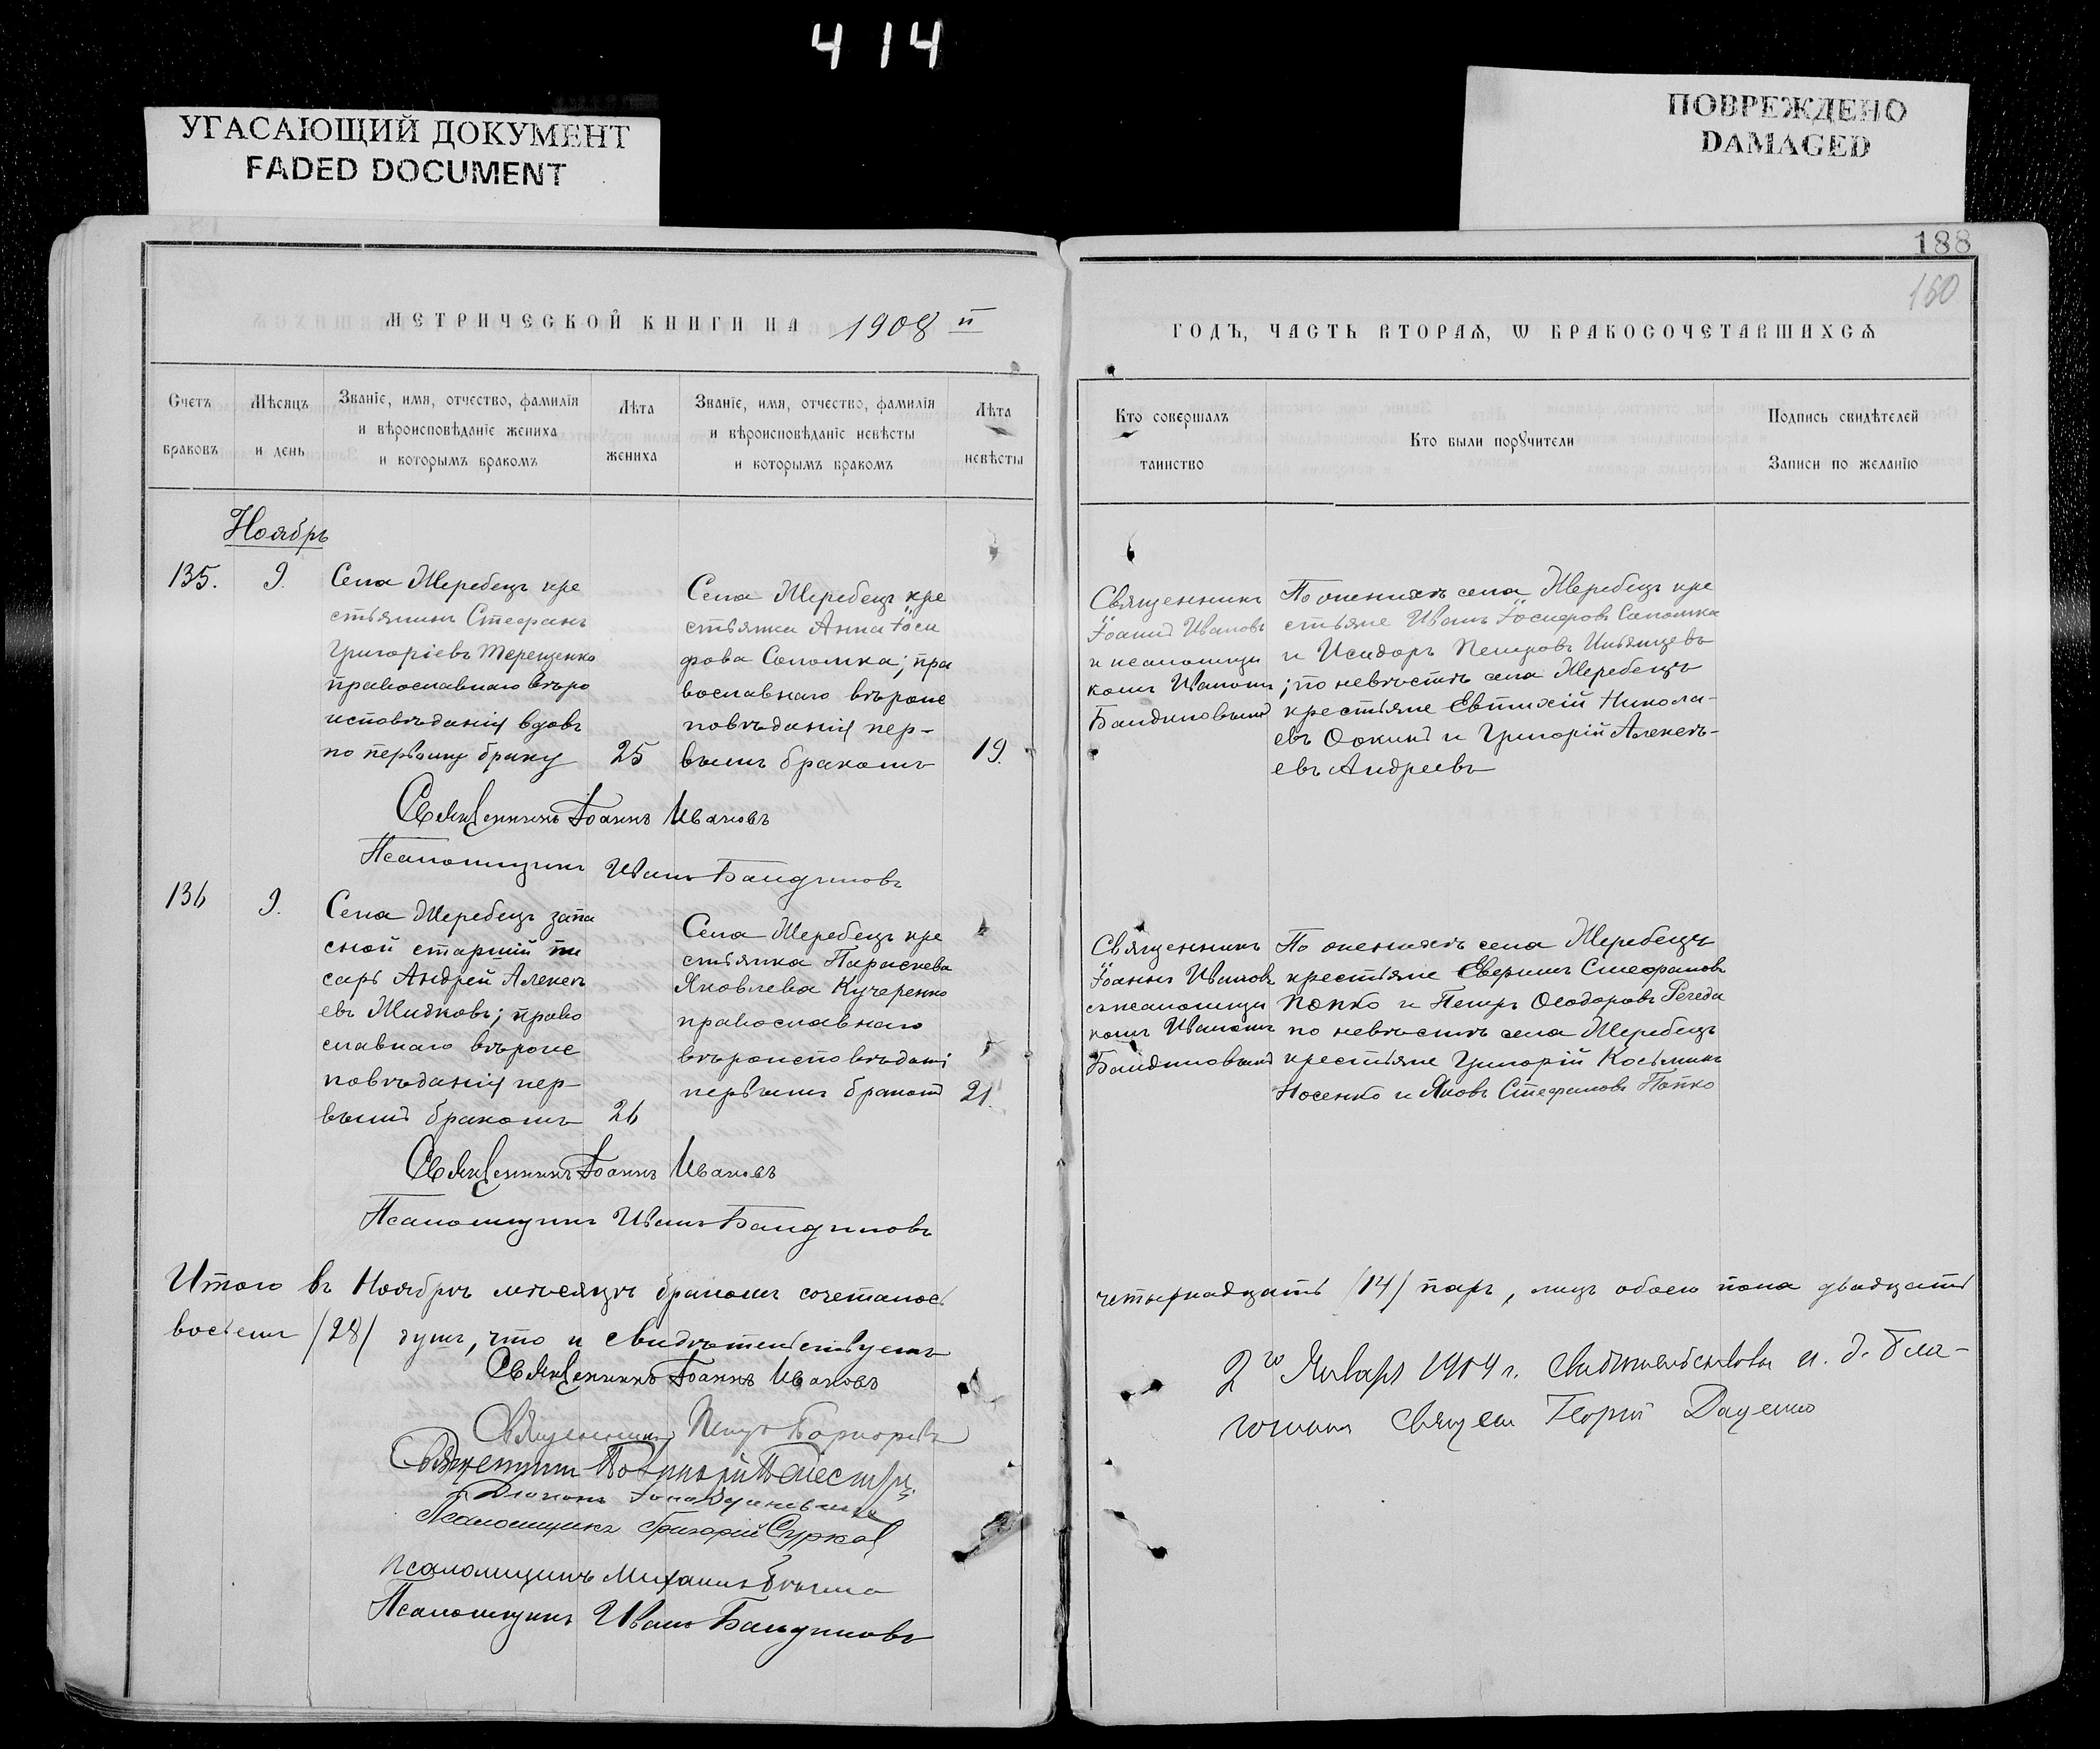 414
УГАСАЮЩИЙ ДОКУМЕНТ
FADED DOCUMENT
ПОВРЕЖДЕНО
DAMAGED
188
160
МЕТРИЧЕСКОЙ КНИГИ НА 1908 й
ГОДЪ, ЧАСТЬ ВТОРАѦ, Ѡ БРАКОСОЧЕТАВШИХСѦ
Счетъ
браковъ
Мѣсяцъ
и день
Званіе, имя, отчество, фамилія
и вѣроисповѣданіе жениха
и которымъ бракомъ
Лѣта
жениха
Званіе, имя, отчество, фамилія
и вѣроисповѣданіе невѣсты
и которымъ бракомъ
Лѣта
невѣсты
Кто совершалъ
таинство
Кто были порꙋчители
Подпись свидѣтелей
Записи по желанію
Ноябрь
135.
9.
Села Жеребецъ кре
стьянинъ Стефанъ
Григоріевъ Терещенко
православнаго вѣро
исповѣданія вдовъ
по первому браку
25
Села Жеребецъ кре
стьянка Анна Іоси
фова Соломка; пра
вославнаго вѣроис
повѣданія пер-
вымъ бракомъ
19.
Священникъ
Іоаннъ Ивановъ
и псаломщи
комъ Иваномъ
Бандиловымъ
По женихѣ села Жеребецъ кре
стьяне Иванъ Іосифовъ Соломка
и Исидоръ Петровъ
; по невѣстѣ села Жеребецъ
крестьяне Евтихій Никола-
евъ и Григорій Алексѣ-
евъ Андреевъ
Священникъ Іоаннъ Ивановъ
Псаломщикъ Иванъ Бандиловъ
136
9.
Села Жеребецъ запа
сной старшій пи
сарь Андрей Алексѣ
евъ Жидковъ; право
славнаго вѣроис
повѣданія пер-
вымъ бракомъ
26
Села Жеребецъ кре
стьянка Параскева
Яковлева Кучеренко
православнаго
вѣроисповѣдані
первымъ бракомъ
21.
Священникъ
Іоаннъ Ивановъ
съ псаломщи
комъ Иваномъ
Бандиловымъ
По женихѣ села Жеребецъ
крестьяне Стефановъ
Попко и Петръ Ѳеодоровъ
по невѣстѣ села Жеребецъ
крестьяне Григорій Косьминъ
Носенко и Яковъ Стефановъ Попко
Священникъ Іоаннъ Ивановъ
Псаломщикъ Иванъ Бандиловъ
Итого въ Ноябрѣ мѣсяцѣ бракомъ сочеталось
четырнадцать /14/ паръ, лицъ обоего пола двадцать
восемь /28/ душъ, что и свидѣтельствуемъ
Священникъ Іоаннъ Ивановъ
Священникъ Петръ
Священникъ
Діаконъ
Псаломщикъ Григорій Сурков
Псаломщикъ Михаилъ
Псаломщикъ Иванъ Бандиловъ
2го Января 1909 г. и. д. Бла-
Священ Георгій Даценко